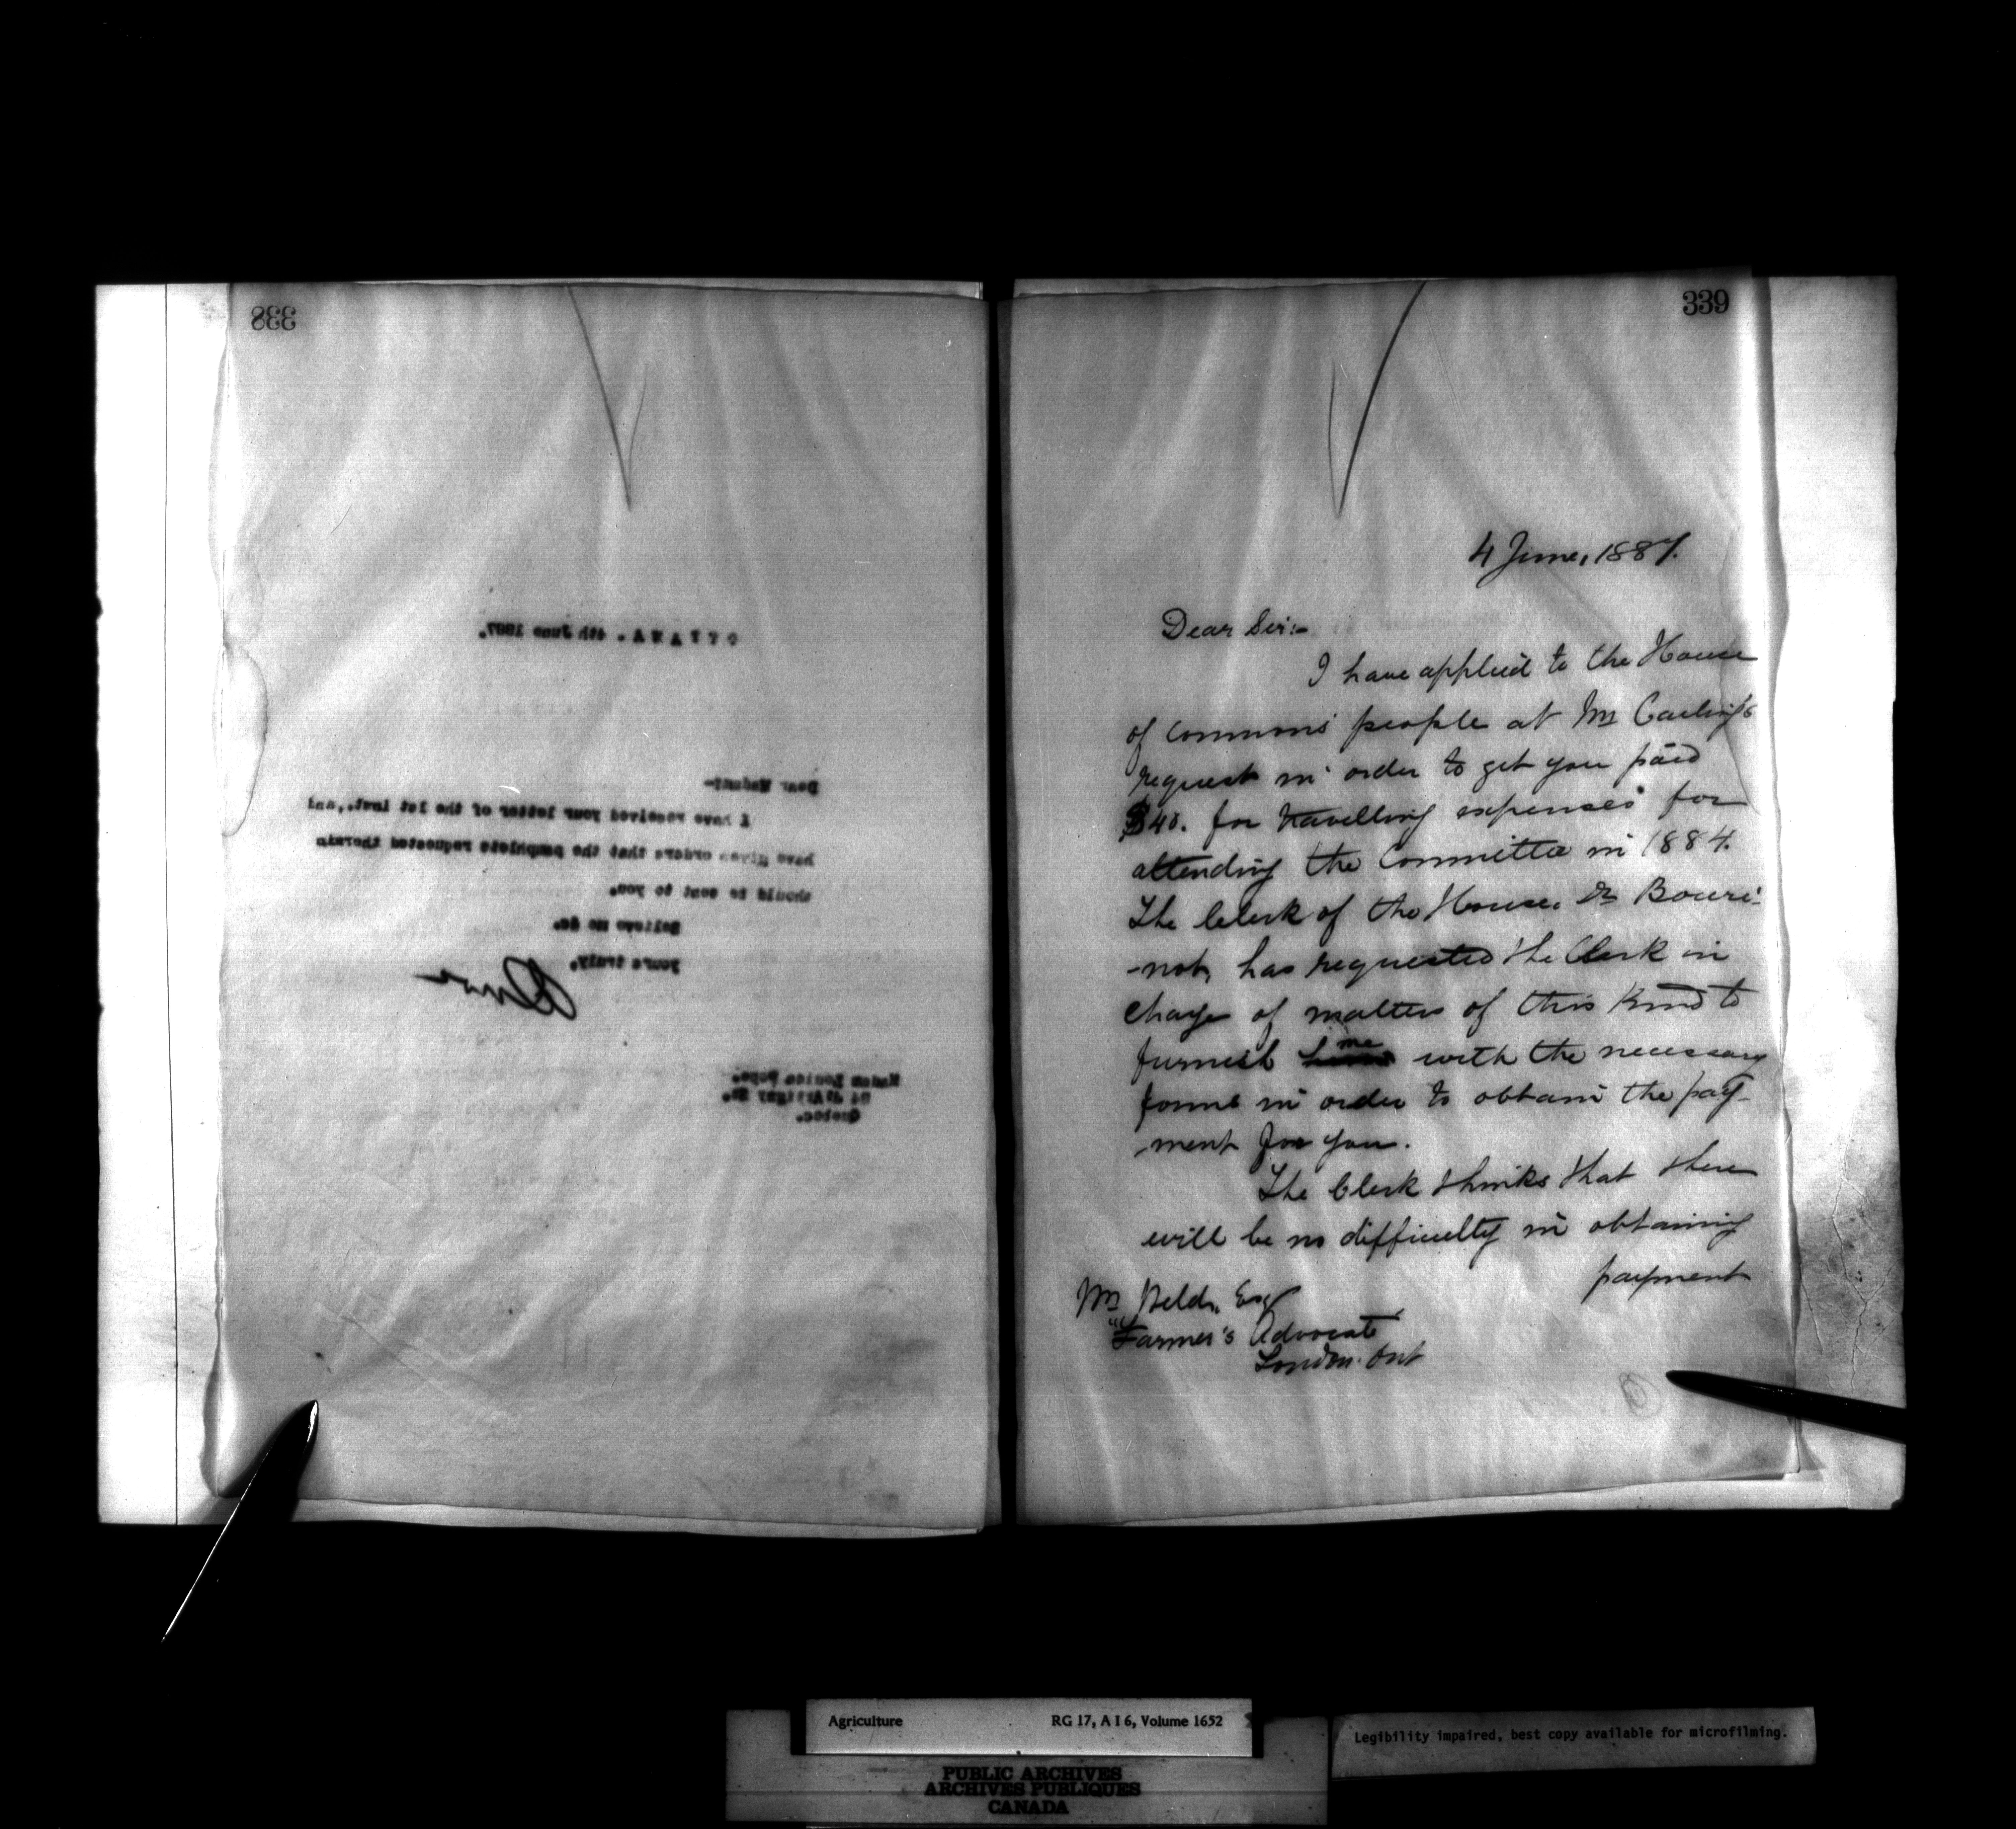 338
OTTAWA. 4th June 1887.
Dear Madam:-
I have received your letter of the 1st inst., and
have given orders that the pamphlets requested therein
should be sent to you.
Believe me &c.
yours truly,
Madam Louisa Pope.
d'Artigny St.
Quebec.
339
4 June, 1887.
Dear Sir:-
I have applied to the House
of Commons people at Mr Carling's
request in order to get you paid
$40. for travelling expenses for
attending the Committee in 1884.
The Clerk of the House, Dr Bouri-
-not, has requested the Clerk in
charge of matters of this kind to
furnish me with the necessary
forms in order to obtain the pay-
-ment for you.
The Clerk thinks that there
will be no difficulty in obtaining
payment
Mr Weld, Esq
"Farmer's Advocate
London. Ont
Agriculture RG 17, A I 6, Volume 1652
Legibility impaired, best copy available for microfilming.
PUBLIC ARCHIVES
ARCHIVES PUBLIQUES
CANADA